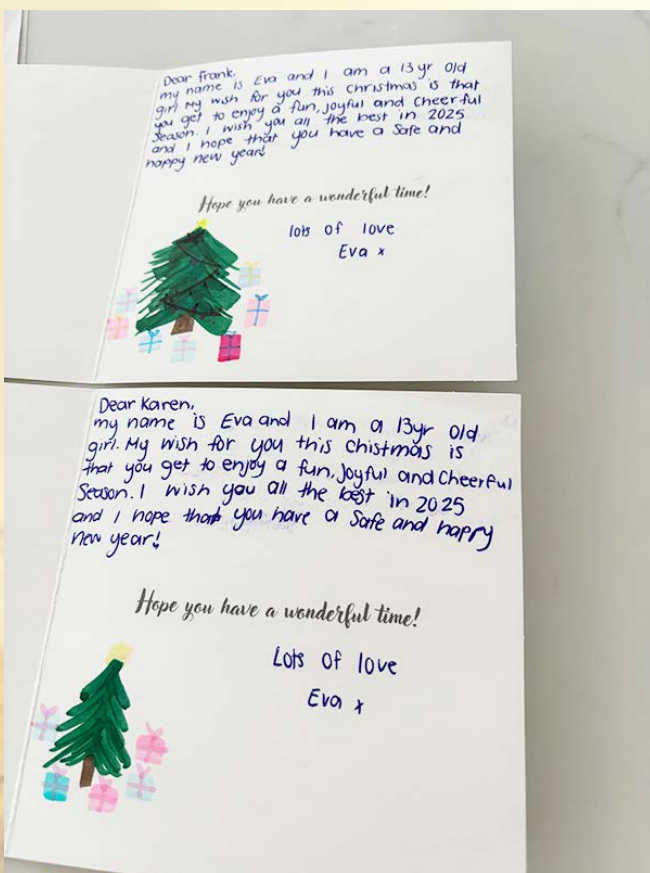 Dear frank,
my name is Eva and I am a 13 yr old
girl My wish for you this christmas is that
you get to enjoy a fun, joyful and cheerful
Season. I wish you all the best in 2025
and I hope that you have a safe and
happy new year!
Hope you have a wonderful time!
lots of love
Eva x
Dear Karen,
my name is Eva and I am a 13yr old
girl. My wish for you this Chistmas is
that you get to enjoy a fun, Joyful and Cheerful
Season. I wish you all the best in 2025
and I hope that you have a Safe and happy
new year!
Hope you have a wonderful time!
Lots of love
Eva x